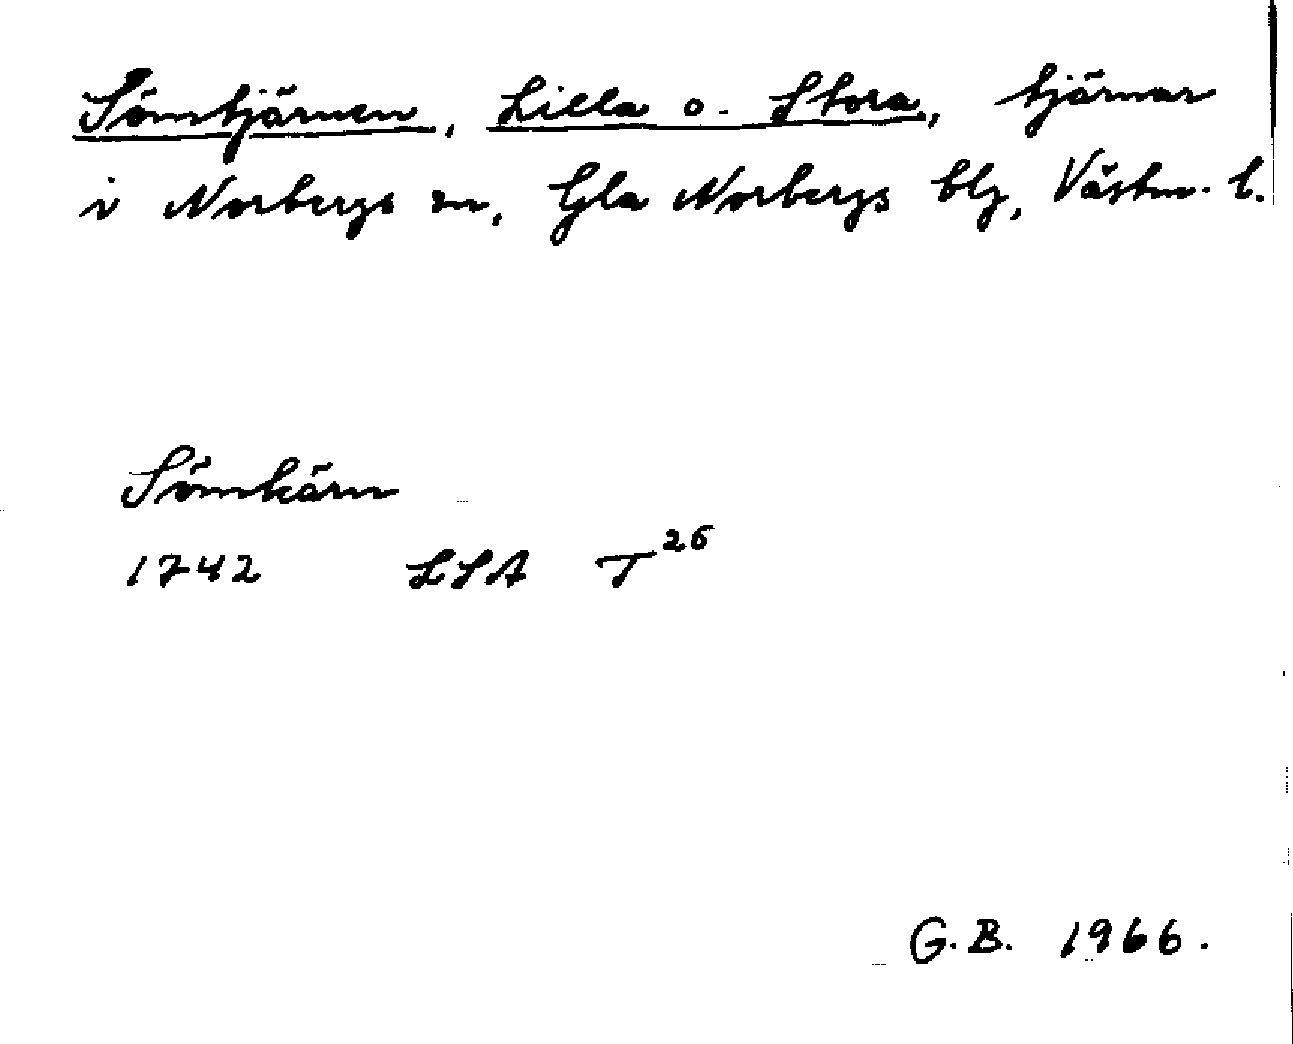 Sömtjärnen, Lilla o. Stora, tjärnar
i Norbergs sn, Gla Norbergs blg, Västm. l.
Sömkärn
1742 LSA T26
G.B. 1966.